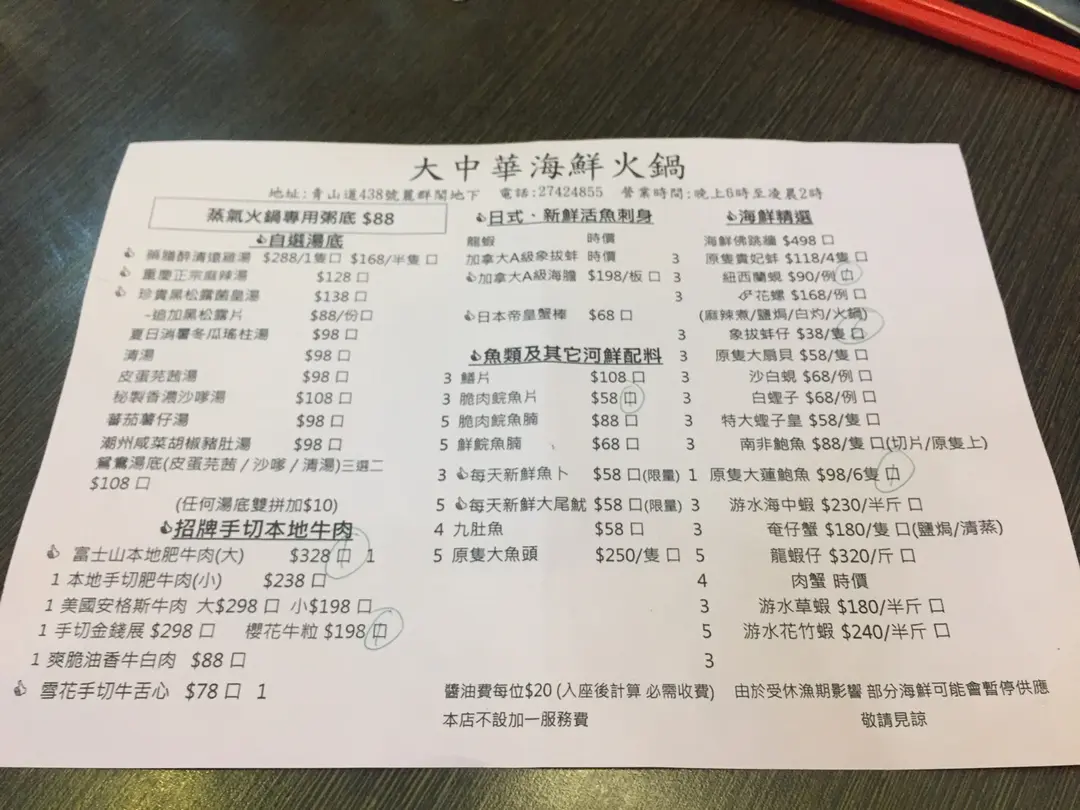 大中華海鮮火鍋
地址:青山道438號麗群閣地下 電話:27424855 營業時間:晚上6時至淩晨2時
蒸氣火鍋專用粥底 $88
自選湯底
藥膳醉清遠雞湯 $288/1隻口 $168/半隻 口
重慶正宗麻辣湯 $128 口
珍貴黑松露菌皇湯 $138 口
-追加黑松露片 $88/份口
夏日消暑冬瓜瑤柱湯 $98 口
清湯 $98 口
皮蛋芫茜湯 $98 口
秘製香濃沙嗲湯 $108 口
蕃茄薯仔湯 $98 口
潮州咸菜胡椒豬肚湯 $98 口
鴛鴦湯底(皮蛋芫茜/沙嗲/清湯)三選二
$108 口
(任何湯底雙拼加$10)
招牌手切本地牛肉
富士山本地肥牛肉(大) $328 口 1
1 本地手切肥牛肉(小) $238 口
1 美國安格斯牛肉 大$298 口 小$198 口
1 手切金錢展 $298 口 櫻花牛粒 $198 口
1 爽脆油香牛白肉 $88 口
雪花手切牛舌心 $78 口 1
日式、新鮮活魚刺身
龍蝦 時價
加拿大A級象拔蚌 時價 3
加拿大A級海膽 $198/板 口 3
3
日本帝皇蟹棒 $68 口
3
魚類及其它河鮮配料 3
3 鱔片 $108 口 3
3 脆肉鯇魚片 $58 口 3
5 脆肉鯇魚腩 $88 口 3
5 鮮鯇魚腩 $68 口 3
3 每天新鮮魚卜 $58 口(限量) 1
5 每天新鮮大尾魷 $58 口(限量) 3
4 九肚魚 $58 口 3
5 原隻大魚頭 $250/隻 口 5
4
3
5
3
海鮮精選
海鮮佛跳牆 $498 口
原隻貴妃蚌 $118/4隻 口
紐西蘭蜆 $90/例 口
花螺 $168/例 口
(麻辣煮/鹽焗/白灼/火鍋)
象拔蚌仔 $38/隻 口
原隻大扇貝 $58/隻 口
沙白蜆 $68/例 口
白蟶子 $68/例 口
特大蟶子皇 $58/隻 口
南非鮑魚 $88/隻 口(切片/原隻上)
原隻大蓮鮑魚 $98/6隻 口
游水海中蝦 $230/半斤 口
奄仔蟹 $180/隻 口(鹽焗/清蒸)
龍蝦仔 $320/斤 口
肉蟹 時價
游水草蝦 $180/半斤 口
游水花竹蝦 $240/半斤 口
醬油費每位$20 (入座後計算 必需收費)
本店不設加一服務費
由於受休漁期影響 部分海鮮可能會暫停供應
敬請見諒